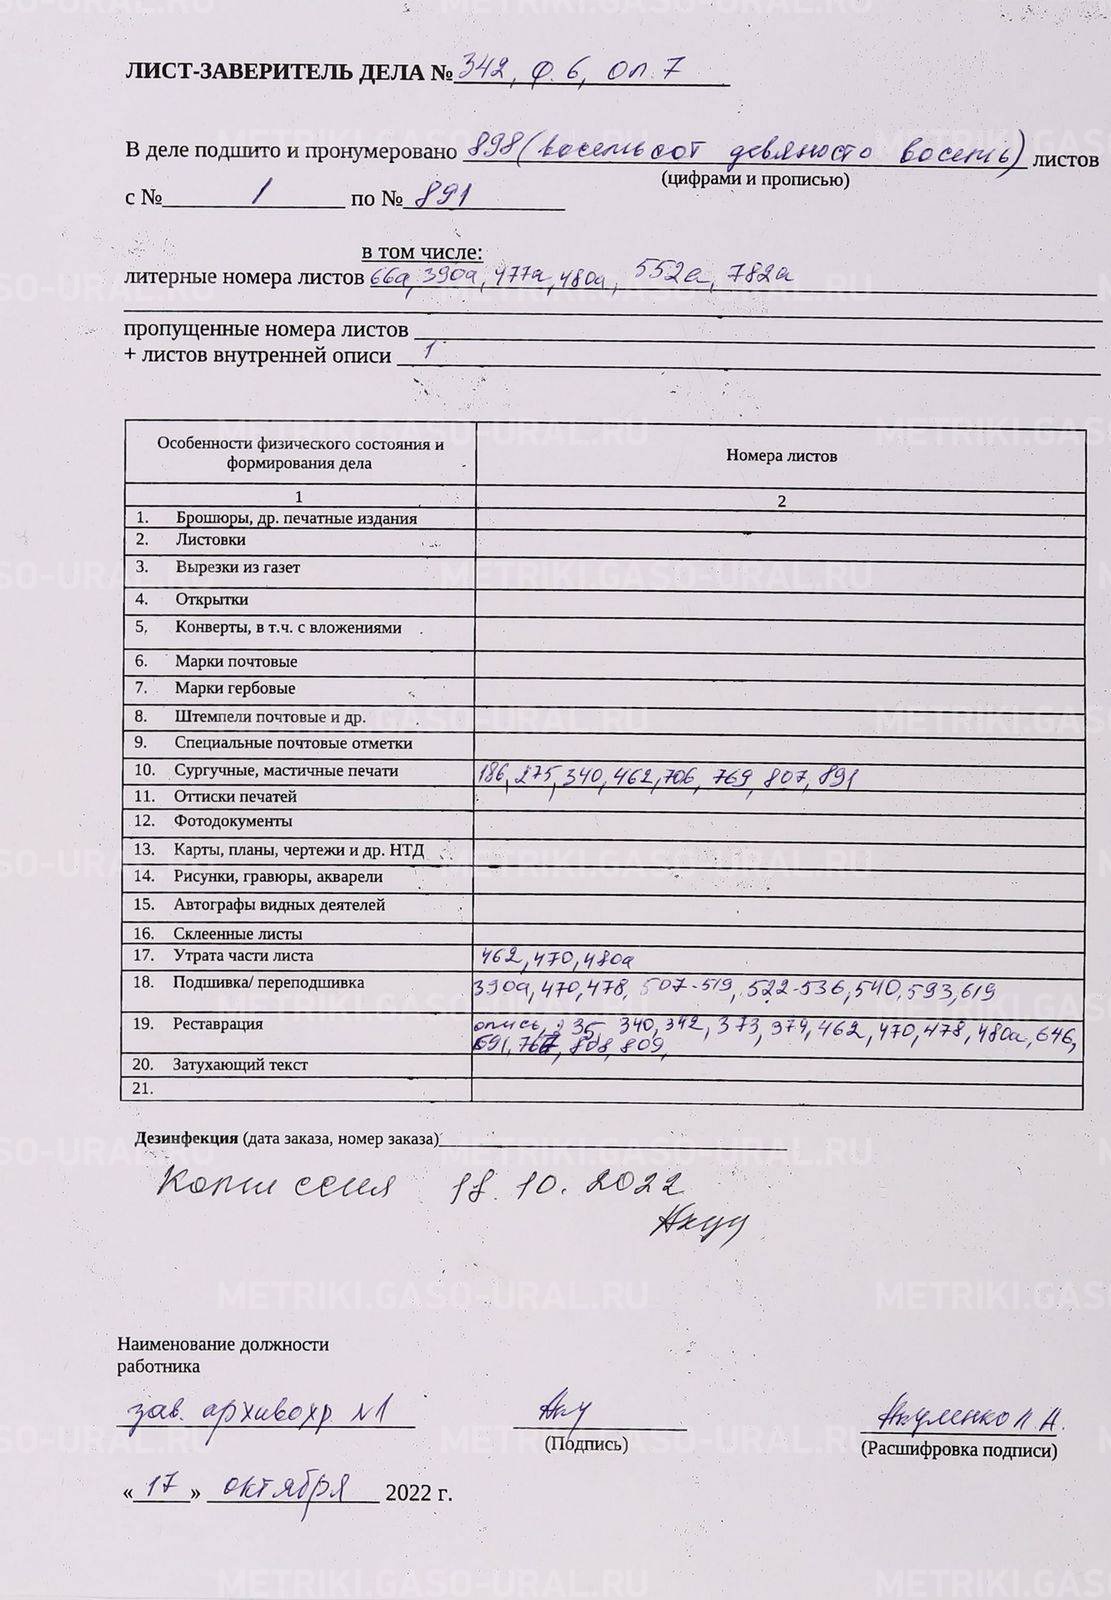 ЛИСТ-ЗАВЕРИТЕЛЬ ДЕЛА № 342, ф. 6, оп. 7
В деле подшито и пронумеровано 898 (восемьсот девяносто восемь) листов
(цифрами и прописью)
с № 1 по № 891
в том числе:
литерные номера листов 66а, 390а, 477а, 480а, 552а, 782а
пропущенные номера листов
+ листов внутренней описи 1
Особенности физического состояния и формирования дела Номера листов
1 2
1. Брошюры, др. печатные издания
2. Листовки
3. Вырезки из газет
4. Открытки
5. Конверты, в т.ч. с вложениями
6. Марки почтовые
7. Марки гербовые
8. Штемпели почтовые и др.
9. Специальные почтовые отметки
10. Сургучные, мастичные печати 186, 275, 340, 462, 706, 769, 807, 891
11. Оттиски печатей
12. Фотодокументы
13. Карты, планы, чертежи и др. НТД
14. Рисунки, гравюры, акварели
15. Автографы видных деятелей
16. Склеенные листы
17. Утрата части листа 462, 470, 480а
18. Подшивка/ переподшивка 390а, 470, 478, 507-519, 522-536, 540, 593, 619
19. Реставрация опись, 340, 342, 373, 374, 462, 470, 478, 480а, 646,
808, 809,
20. Затухающий текст
21.
Дезинфекция (дата заказа, номер заказа)
Копия 10. 2022
Наименование должности
работника
зав. архивохр. №1 Аку Акуленко Л. А.
(Подпись) (Расшифровка подписи)
« 17 » октября 2022 г.
METRIKI.GASO-URAL.RU